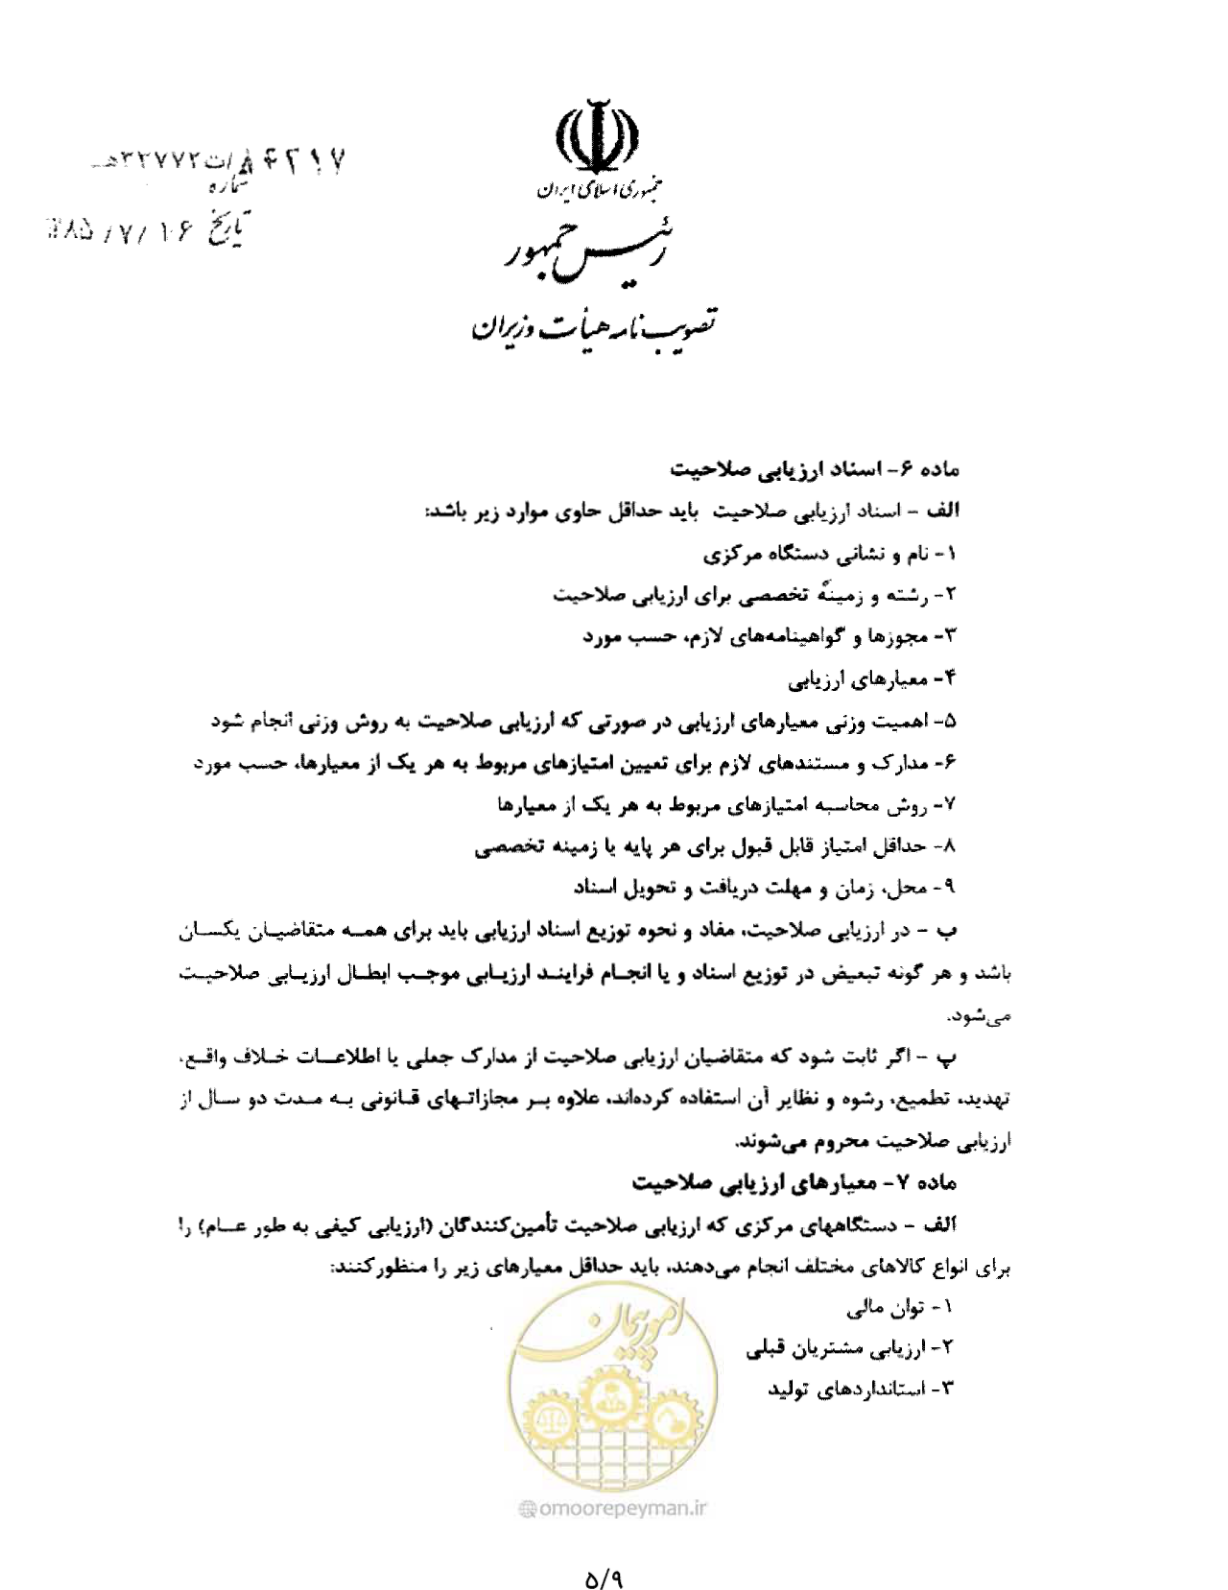 جمهوری اسلامی ایران
رئیس جمهور
تصویب نامه هیأت وزیران
/ت۳۲۷۷۲هـ
شماره
تاریخ ۱۶ /۷/ ۸۵
ماده ۶- اسناد ارزیابی صلاحیت
الف - اسناد ارزیابی صلاحیت باید حداقل حاوی موارد زیر باشد:
۱- نام و نشانی دستگاه مرکزی
۲- رشته و زمینهٔ تخصصی برای ارزیابی صلاحیت
۳- مجوزها و گواهینامه‌های لازم، حسب مورد
۴- معیارهای ارزیابی
۵- اهمیت وزنی معیارهای ارزیابی در صورتی که ارزیابی صلاحیت به روش وزنی انجام شود
۶- مدارک و مستندهای لازم برای تعیین امتیازهای مربوط به هر یک از معیارها، حسب مورد
۷- روش محاسبه امتیازهای مربوط به هر یک از معیارها
۸- حداقل امتیاز قابل قبول برای هر پایه یا زمینه تخصصی
۹- محل، زمان و مهلت دریافت و تحویل اسناد
ب - در ارزیابی صلاحیت، مفاد و نحوه توزیع اسناد ارزیابی باید برای همه متقاضیان یکسان
باشد و هر گونه تبعیض در توزیع اسناد و یا انجام فرایند ارزیابی موجب ابطال ارزیابی صلاحیت
می‌شود.
پ - اگر ثابت شود که متقاضیان ارزیابی صلاحیت از مدارک جعلی یا اطلاعات خلاف واقع،
تهدید، تطمیع، رشوه و نظایر آن استفاده کرده‌اند، علاوه بر مجازاتهای قانونی به مدت دو سال از
ارزیابی صلاحیت محروم می‌شوند.
ماده ۷- معیارهای ارزیابی صلاحیت
الف - دستگاههای مرکزی که ارزیابی صلاحیت تأمین‌کنندگان (ارزیابی کیفی به طور عام) را
برای انواع کالاهای مختلف انجام می‌دهند، باید حداقل معیارهای زیر را منظورکنند:
۱- توان مالی
۲- ارزیابی مشتریان قبلی
۳- استانداردهای تولید
امور پیمان
omoorepeyman.ir
۵/۹